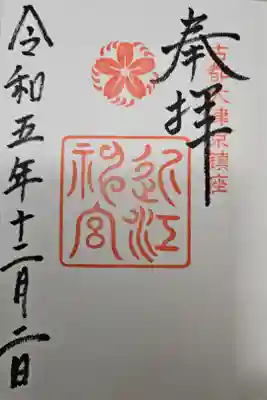 奉拝
古都大津京鎮座
近江神宮
令和五年十二月二日